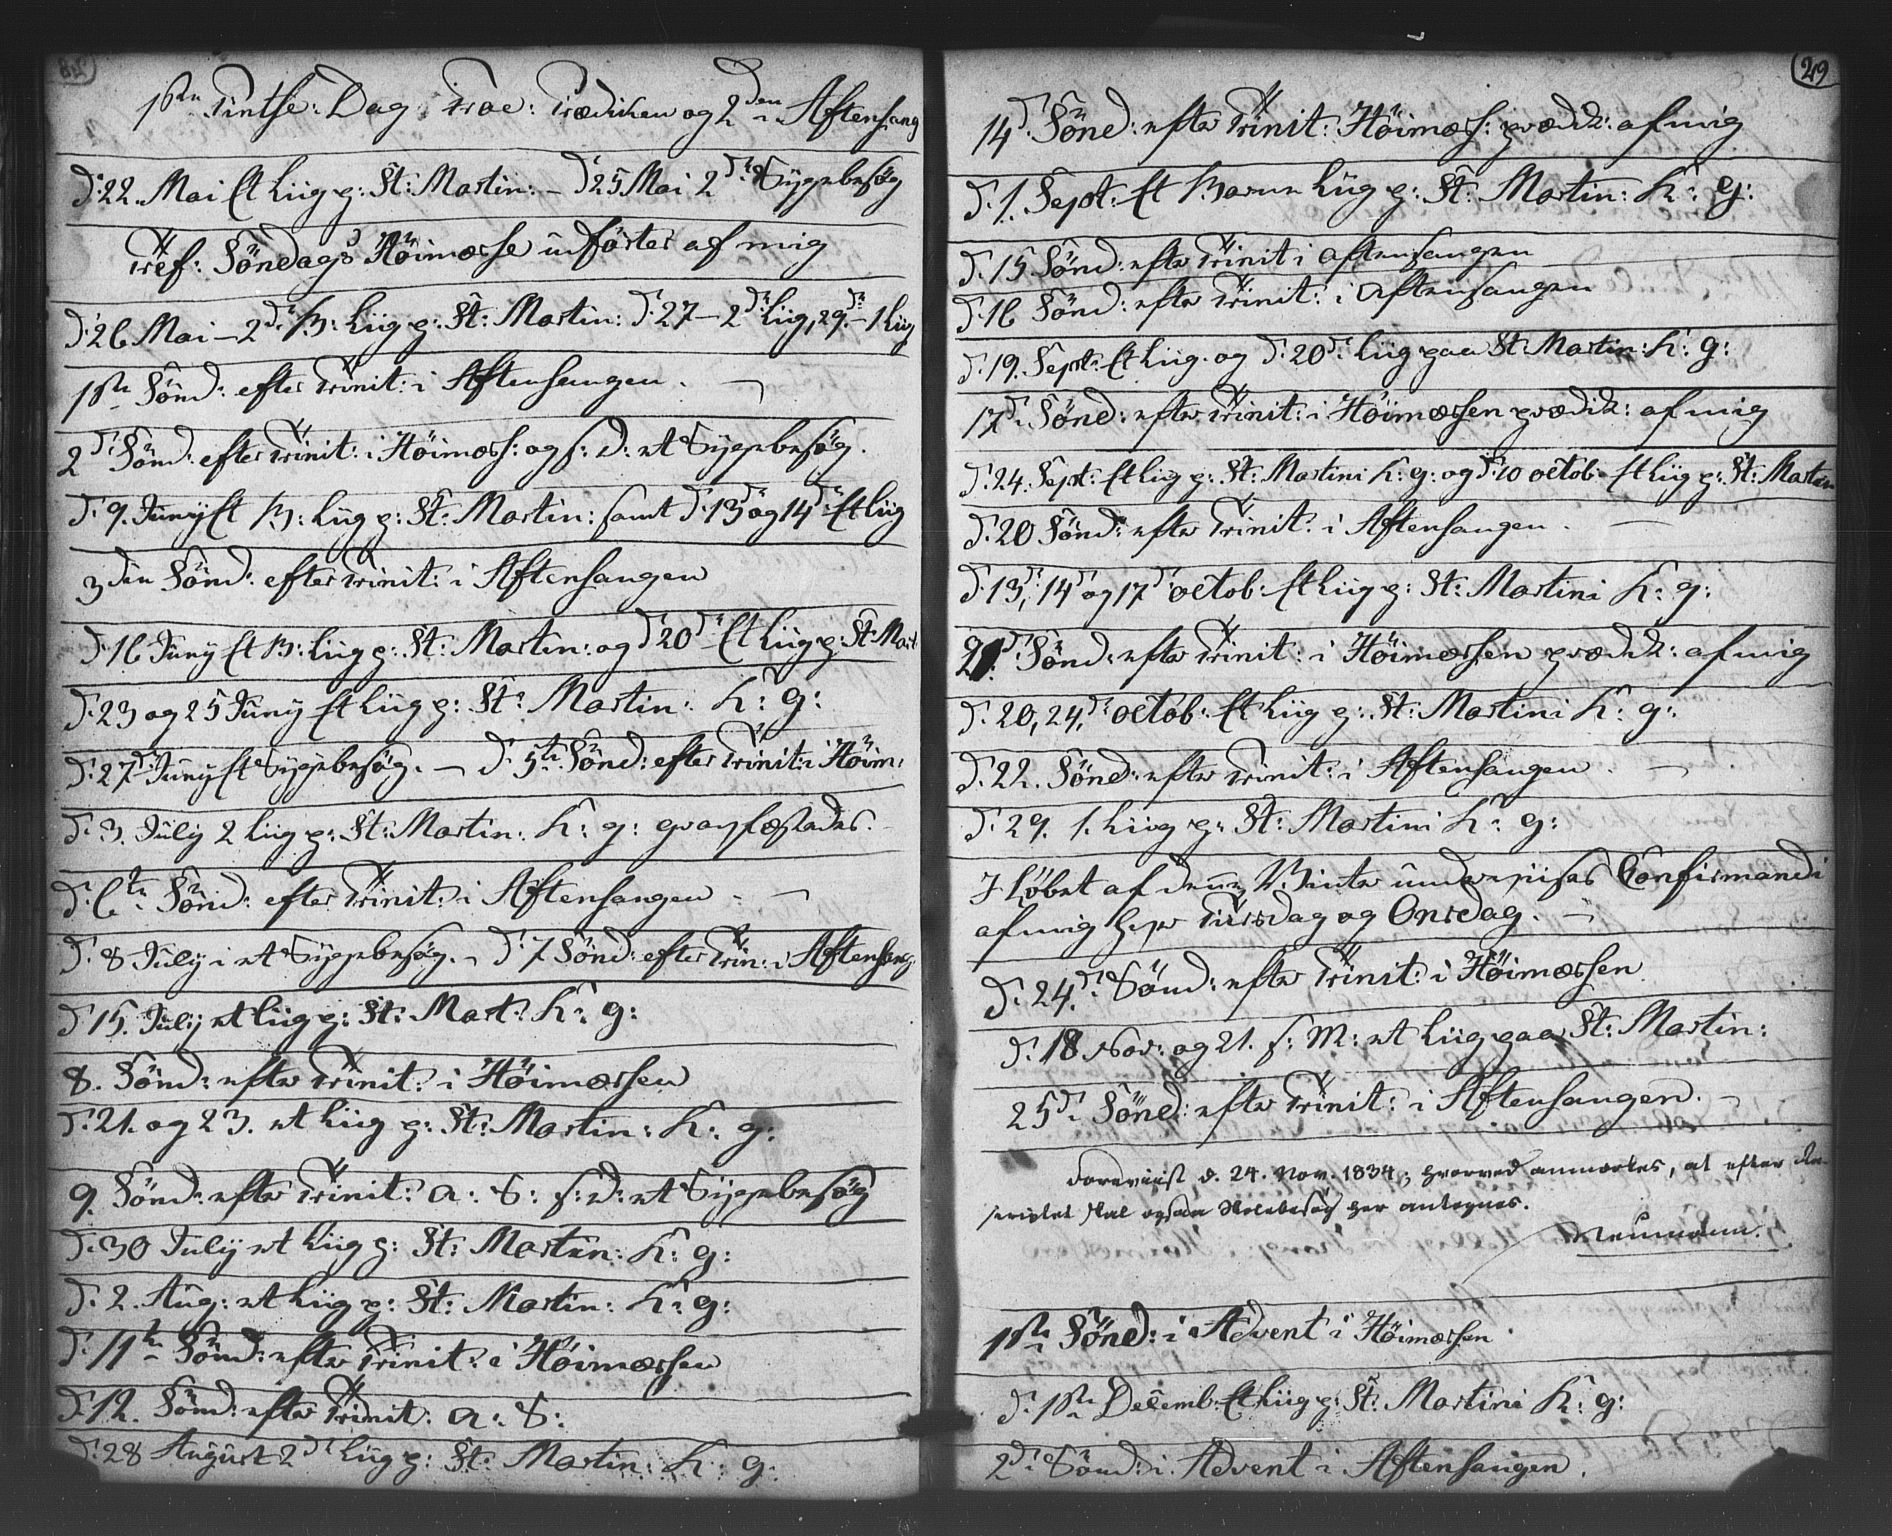 1ste Pintse: Dag Froe: Prædiken og 2den Aftensang
D: 22. Mai Et Liig p: St: Martin: – D 25 Mai 2de Sygebesøg
Tref: Søndags Höimæsse udførtes af mig
D: 26 Mai – 2de B: Liig p: St: Martin: D: 27 – 2de Liig, 29. – 1 Liig
1ste Sönd: efter Trinit: i Aftensangen. –
2de Sönd: efter Trinit: i Höimæss: og s: D: et Sygebesög.
D: 9. Juny Et B: Liig p: St: Martin: samt D: 13 og 14de Et Liig
3den Sönd: efter Trinit: i Aftensangen
D: 16 Juny Et B: Liig p: St: Martin: og D 20de Et Liig p: St: Mart
D: 23 og 25 Juny Et Liig p: St: Martin: K: g:
D: 27de Juny Et Sygebesög. – D: 5te Sönd: efter Trinit: i Höim:
D: 3. July 2 Liig p: St: Martin: K: g: gravfæstedes. –
D: 6te Sönd: efter Trinit: i Aftensangen. –
D: 8 July i et Sygebesög. – D: 7 Sönd: efter Trin: i Aftensang
D 15. July et Liig p: St: Mart: K: g:
8. Sönd: efter Trinit: i Höimæssen
D: 21. og 23. et Liig p: St: Martin: K: g:
9. Sönd: efter Trinit: a: S: s: D: et Sygebesøg
D: 30 July et Liig p: St: Martin: K: g:
D: 2. Aug: et Liig p: St: Martin: K: g:
D: 11te Sönd: efter Trinit: i Höimæssen
D: 12. Sönd: efter Trinit: a: S:
D: 28 August 2de Liig p: St: Martin: K: g:
29
14de Sönd: efter Trinit: Höimæss: prædik: af mig
D. 1. Sept: Et Barne Liig p: St: Martin: K: g:
D: 15 Sönd: efter Trinit i Aftensangen
D: 16 Sönd: efter Trinit: i Aftensangen
D: 19. Sept: Et Liig. og D: 20de Liig paa St: Martin: K: g:
17de Sönd: efter Trinit: i Höimæssen prædik: af mig
D: 24. Sept: Et Liig p: St: Martini K: g: og D 10 Octob: Et Liig p: St: Martin
D: 20 Sönd: efter Trinit: i Aftensangen. –
D: 13, 14 og 17de Octob: Et Liig p: St: Martini K: g:
21de Sönd: efter Trinit: i Höimæssen prædik: af mig
D: 20, 24, de Octob: Et Liig p: St: Martini K: g:
D: 22. Sönd: efter Trinit: i Aftensangen. –
D: 29. 1. Liig p: St: Martini K: g:
I Løbet af denne Vinter underviises Confirmandi
af mig hver Tirsdag og Onsdag. –
D: 24de Sönd: efter Trinit: i Höimæssen
D: 18 Nov: og 21. s: M: et Liig paa St: Martin:
25de Sönd: efter Trinit: i Aftensangen. –
Foreviist d. 24. Nov. 1834; hvorved anmærkes, at efter Re-
scriptet skal ogsaa Skolebesøg her antegnes.
Neumann.
1ste Sönd: i Advent i Höimæssen.
D: 1ste Decemb: Et Liig p: St: Martini K: g:
2de Sönd: i Advent i Aftensangen.